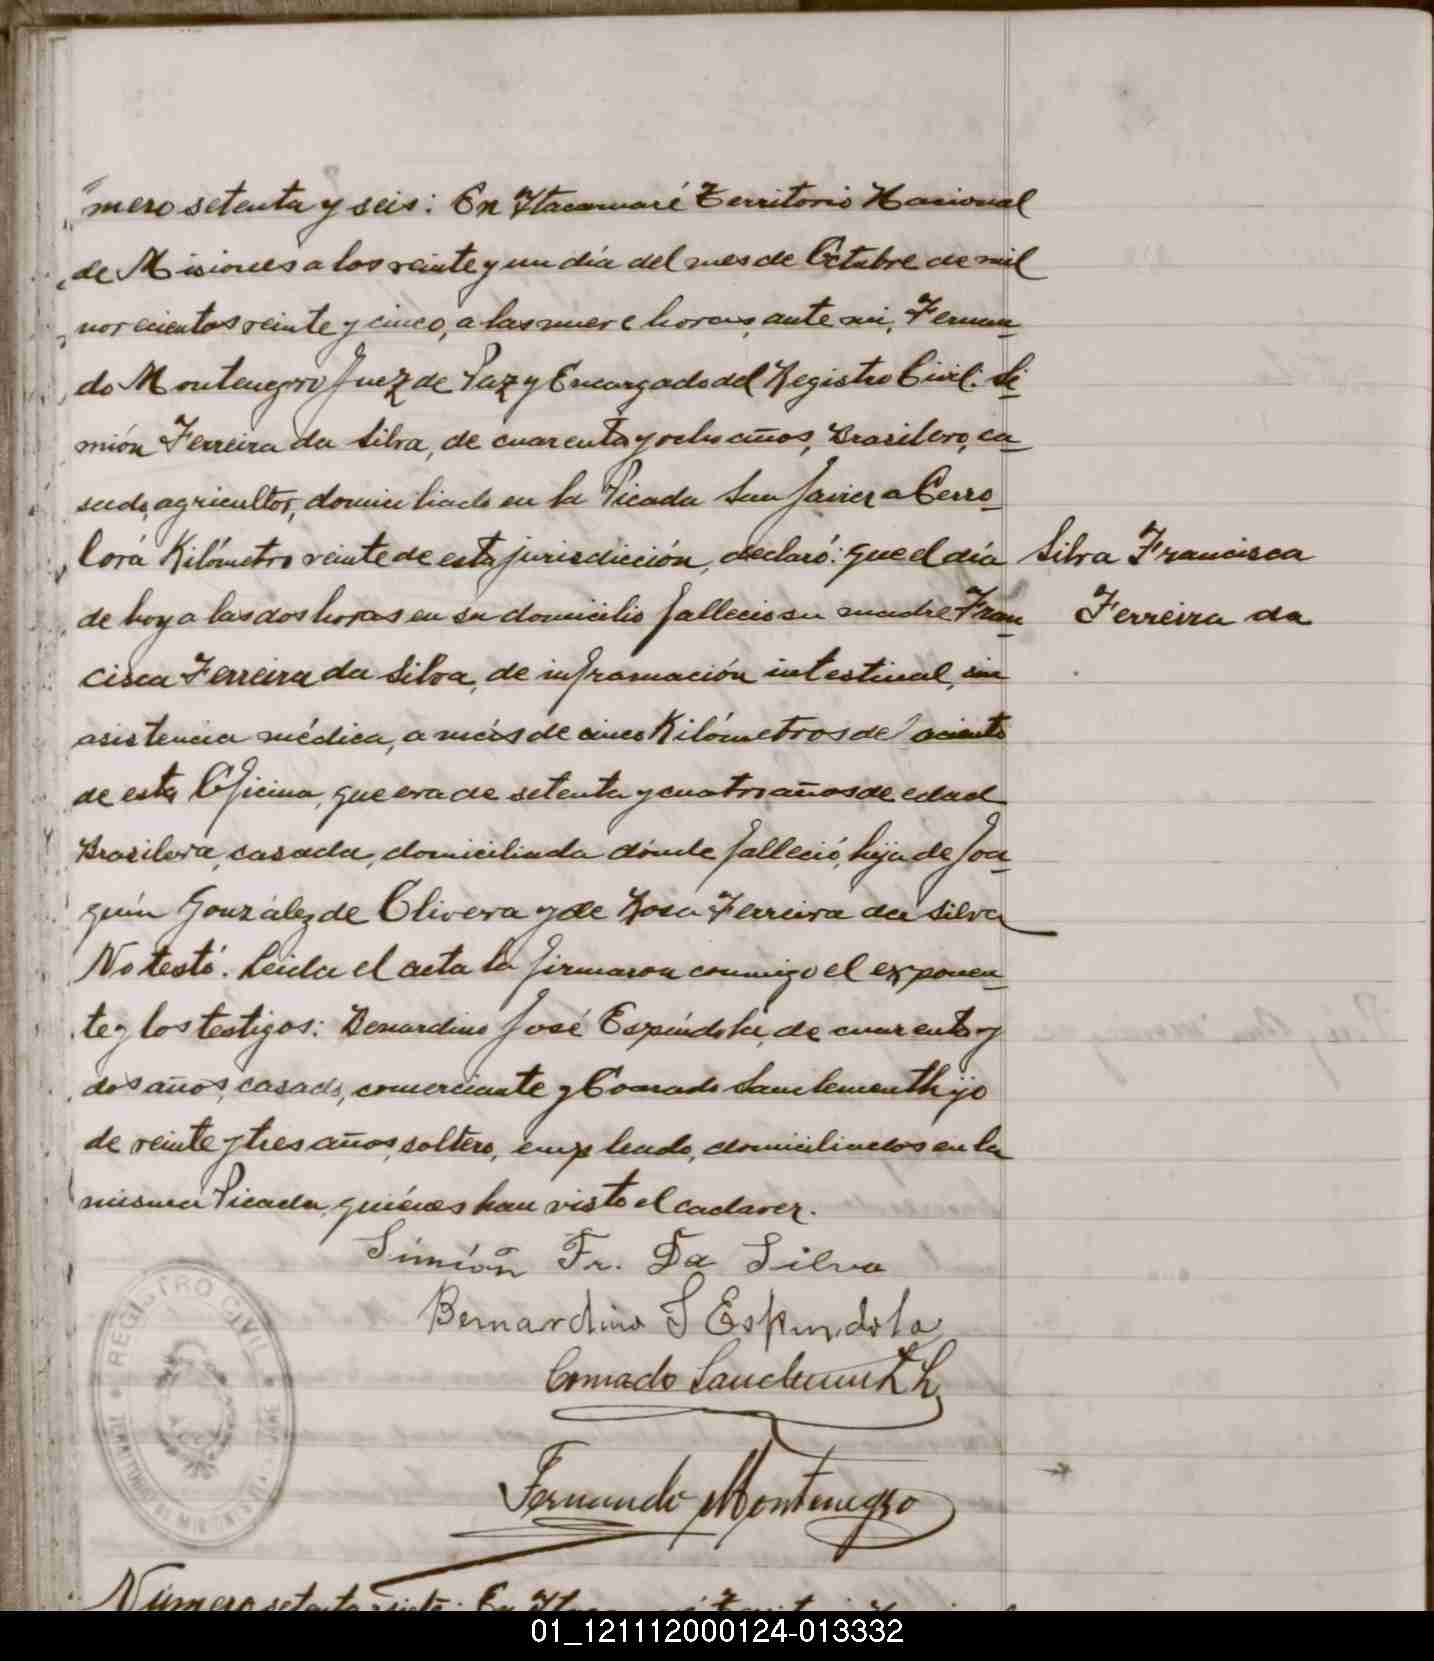 mero setenta y seis: En Itacaruaré Territorio Nacional
de Misiones a los veinte y un día del mes de Octubre de mil
novecientos veinte y cinco, a las nueve horas, ante mi, Fernan-
do Montenegro Juez de Paz y Encargado del Registro Civil. Si-
mión Ferreira da Silva, de cuarenta y ocho años, Brasilero, ca-
sado, agricultor, domiciliado en la Picada San Javier a Cerro-
Corá Kilómetro veinte de esta jurisdicción, declaró: que el día
Silva Francisca
de hoy a las dos horas en su domicilio falleció su madre Fran-
Ferreira da
cisca Ferreira da Silva, de inframación intestinal, sin
asistencia médica, a más de cinco Kilómetros de
de esta Oficina, que era de setenta y cuatro años de edad
Brasilera, casada, domiciliada dónde falleció, hija de Joa-
quín González de Olivera y de Rosa Ferreira da Silva
No testó. Leida el acta la firmaron conmigo el exponen-
te y los testigos: Bernardino José Espíndola, de cuarenta y
dos años, casado, comerciante y Conrado Sanclementh hijo
de veinte y tres años, soltero, empleado, domiciliados en la
misma Picada, quiénes han visto el cadaver.
Simión Fr. Da Silva
Bernardino J Espindola
Conrado Sanclementh h
Fernando Montenegro
REGISTRO CIVIL
TERRITORIO DE MISIONES
Número setenta y siete: En Itacaruaré Territorio Nacional
01_121112000124-013332